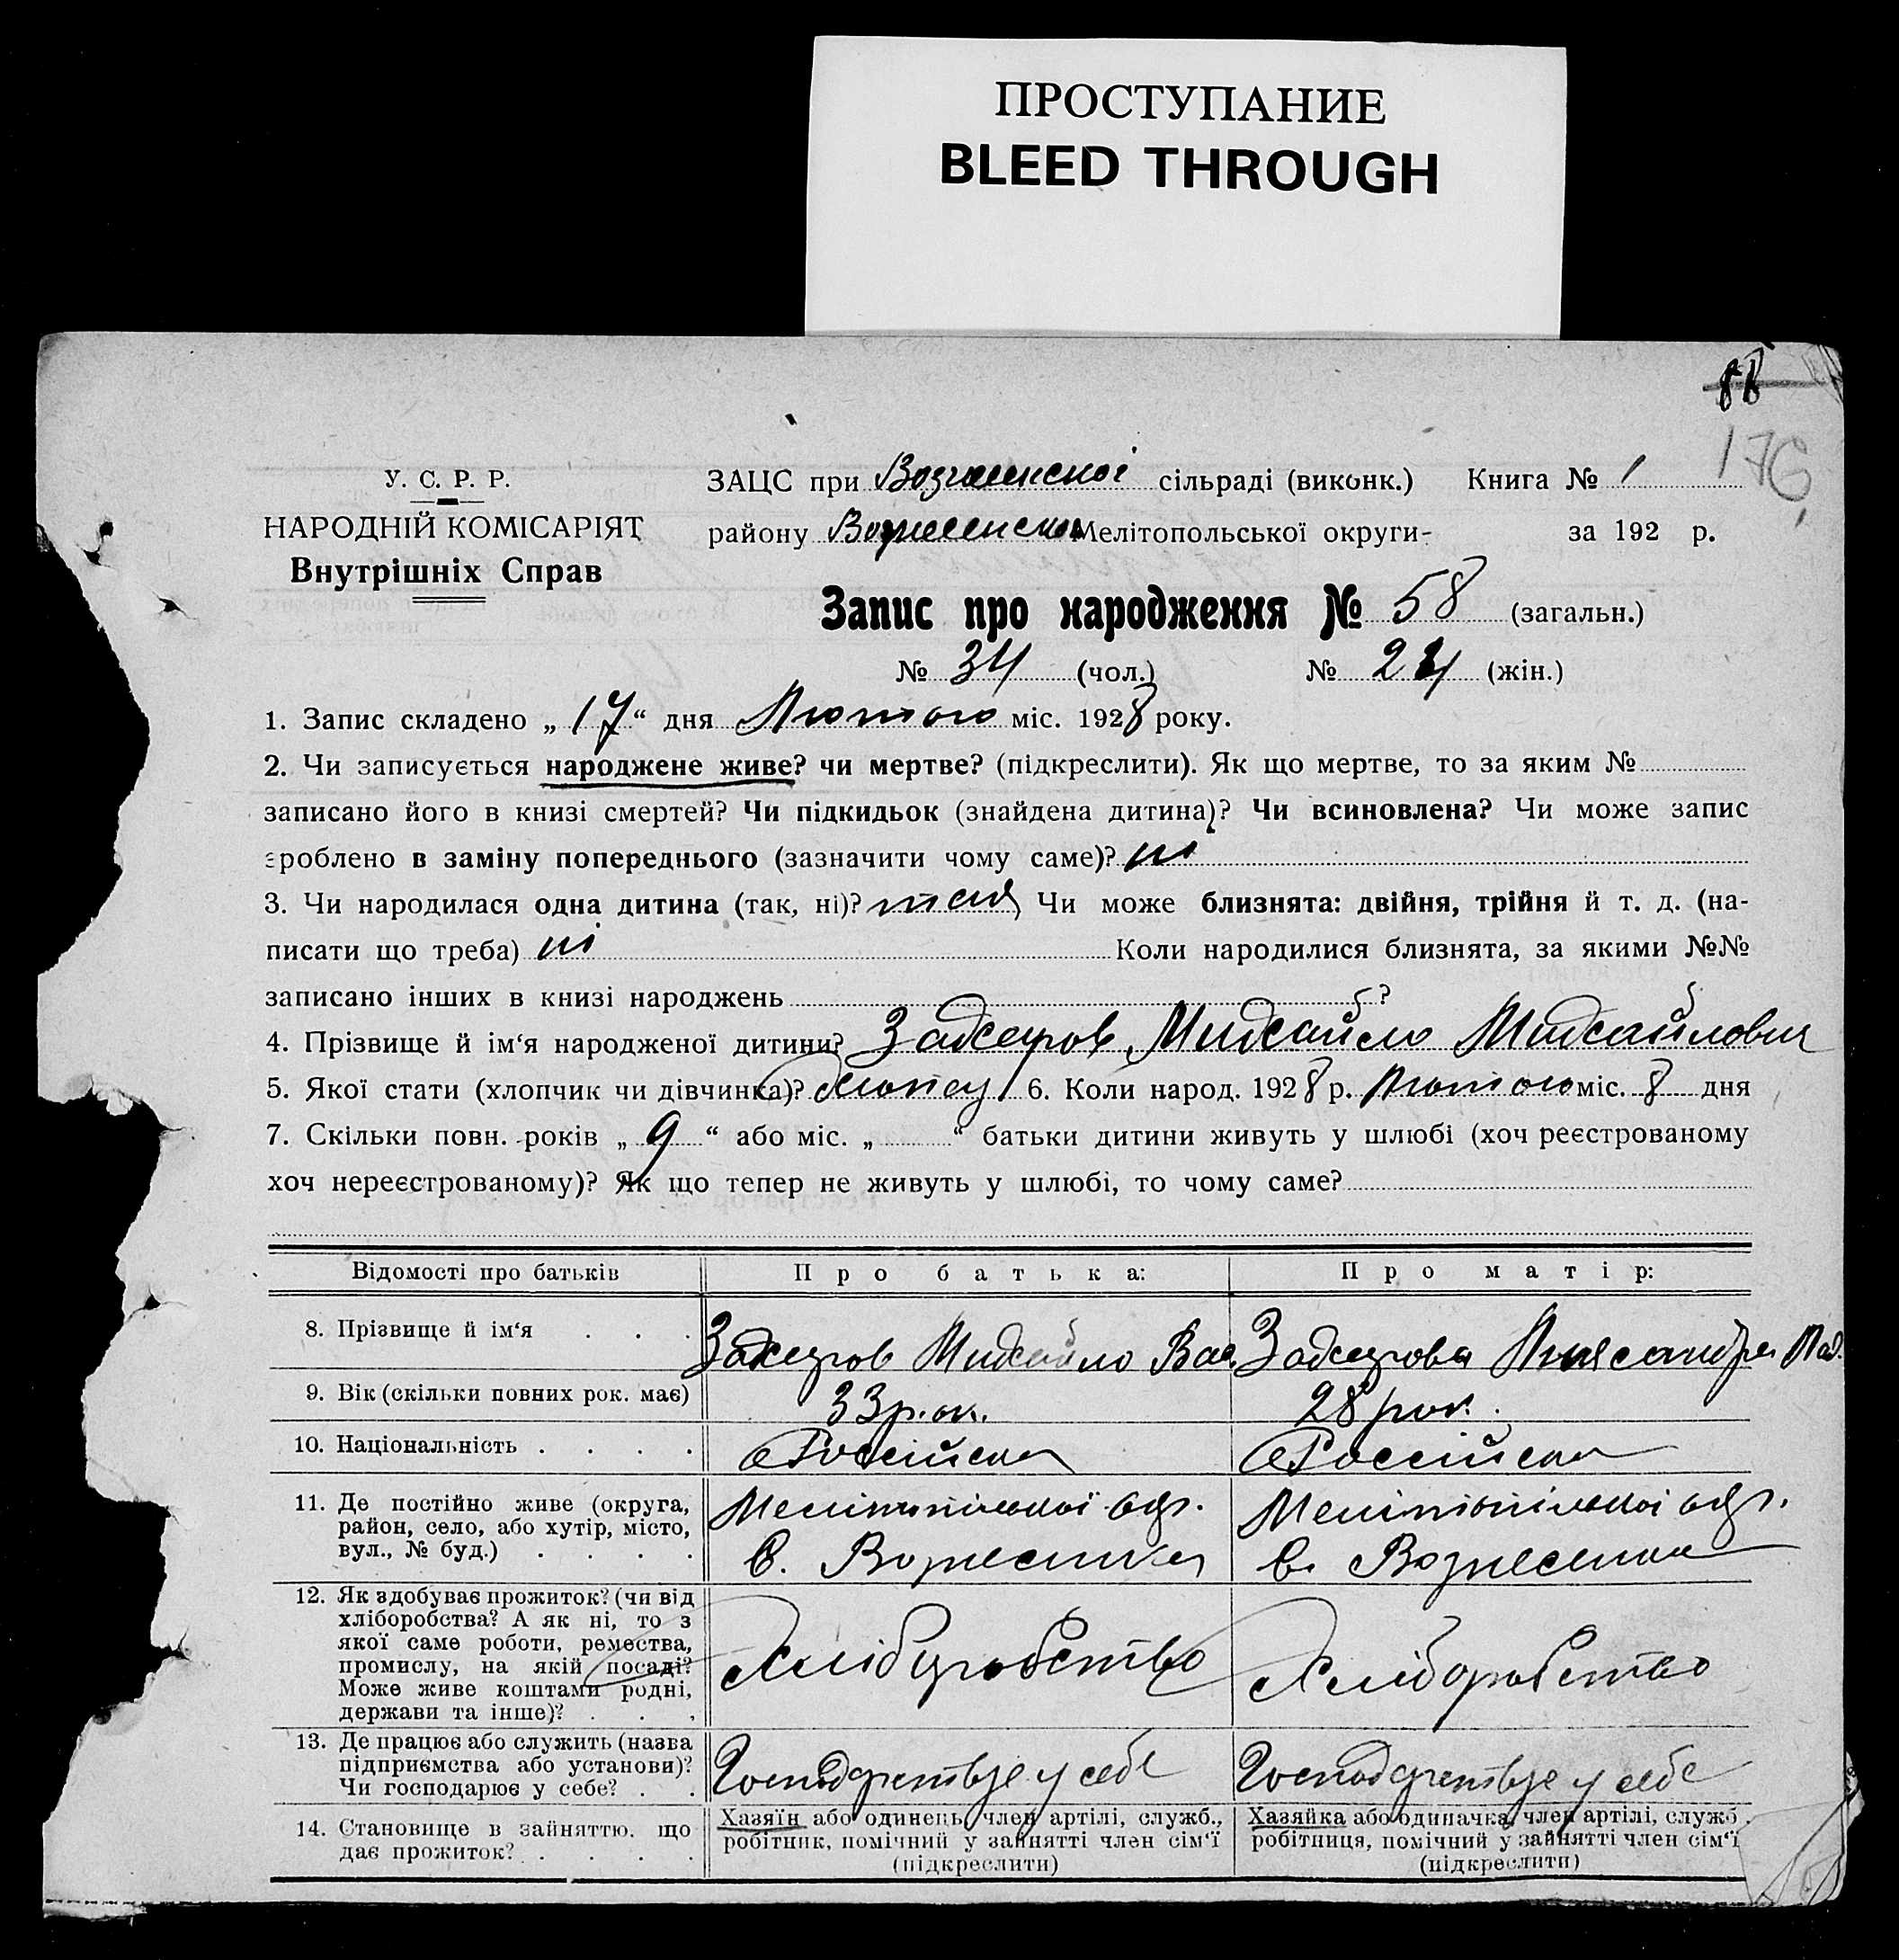 ПРОСТУПАНИЕ
BLEED THROUGH
88
176
У. С. Р. Р.
НАРОДНІЙ КОМІСАРІЯТ
Внутрішніх Справ
ЗАЦС при сільраді (виконк.) Книга № 1
району Мелітопольської округи- за 192 р.
Запис про народження № 58 (загальн.)
№ 34 (чол.) № 24 (жін.)
1. Запис складено „ 17 “ дня Лютого міс. 1928 року.
2. Чи записується народжене живе? чи мертве? (підкреслити). Як що мертве, то за яким №
записано його в книзі смертей? Чи підкидьок (знайдена дитина)? Чи всиновлена? Чи може запис
зроблено в заміну попереднього (зазначити чому саме)? ні
3. Чи народилася одна дитина (так, ні)? так Чи може близнята: двійня, трійня й т. д. (на-
писати що треба) ні Коли народилися близнята, за якими №№
записано інших в книзі народжень ?
4. Прізвище й ім‘я народженої дитини? Захаров Михайло Михайлович
5. Якої стати (хлопчик чи дівчинка)? 6. Коли народ. 1928 р. Лютого міс. 8 дня
7. Скільки повн. років „ 9 “ або міс. „ “ батьки дитини живуть у шлюбі (хоч реєстрованому
хоч нереєстрованому)? Як що тепер не живуть у шлюбі, то чому саме?
Відомості про батьків Про батька: Про матір:
8. Прізвище й ім‘я . . . Захаров Михайло Вас. Захарова
9. Вік (скільки повних рок. має) 33 рок. 28 рок.
10. Національність . . . . Російска Російска
11. Де постійно живе (округа,
район, село, або хутір, місто,
вул., № буд.) . . . .
Мелітопільської окр.
с. Вознесенка
Мелітопільської окр.
с. Вознесенка
12. Як здобуває прожиток? (чи від
хліборобства? А як ні, то з
якої саме роботи, ремества,
промислу, на якій посаді?
Може живе коштами родні,
держави та інше)? . . .
Хліборобство Хліборобство
13. Де працює або служить (назва
підприємства або установи)?
Чи господарює у себе? . .
у себе у себе
14. Становище в зайняттю, що
дає прожиток? . . . .
Хазяїн або одинець, член артілі, служб.,
робітник, помічний у зайнятті член сім‘ї
(підкреслити)
Хазяйка або одиначка, член артілі, служб.
робітниця, помічний у зайнятті член сім‘ї
(підкреслити)